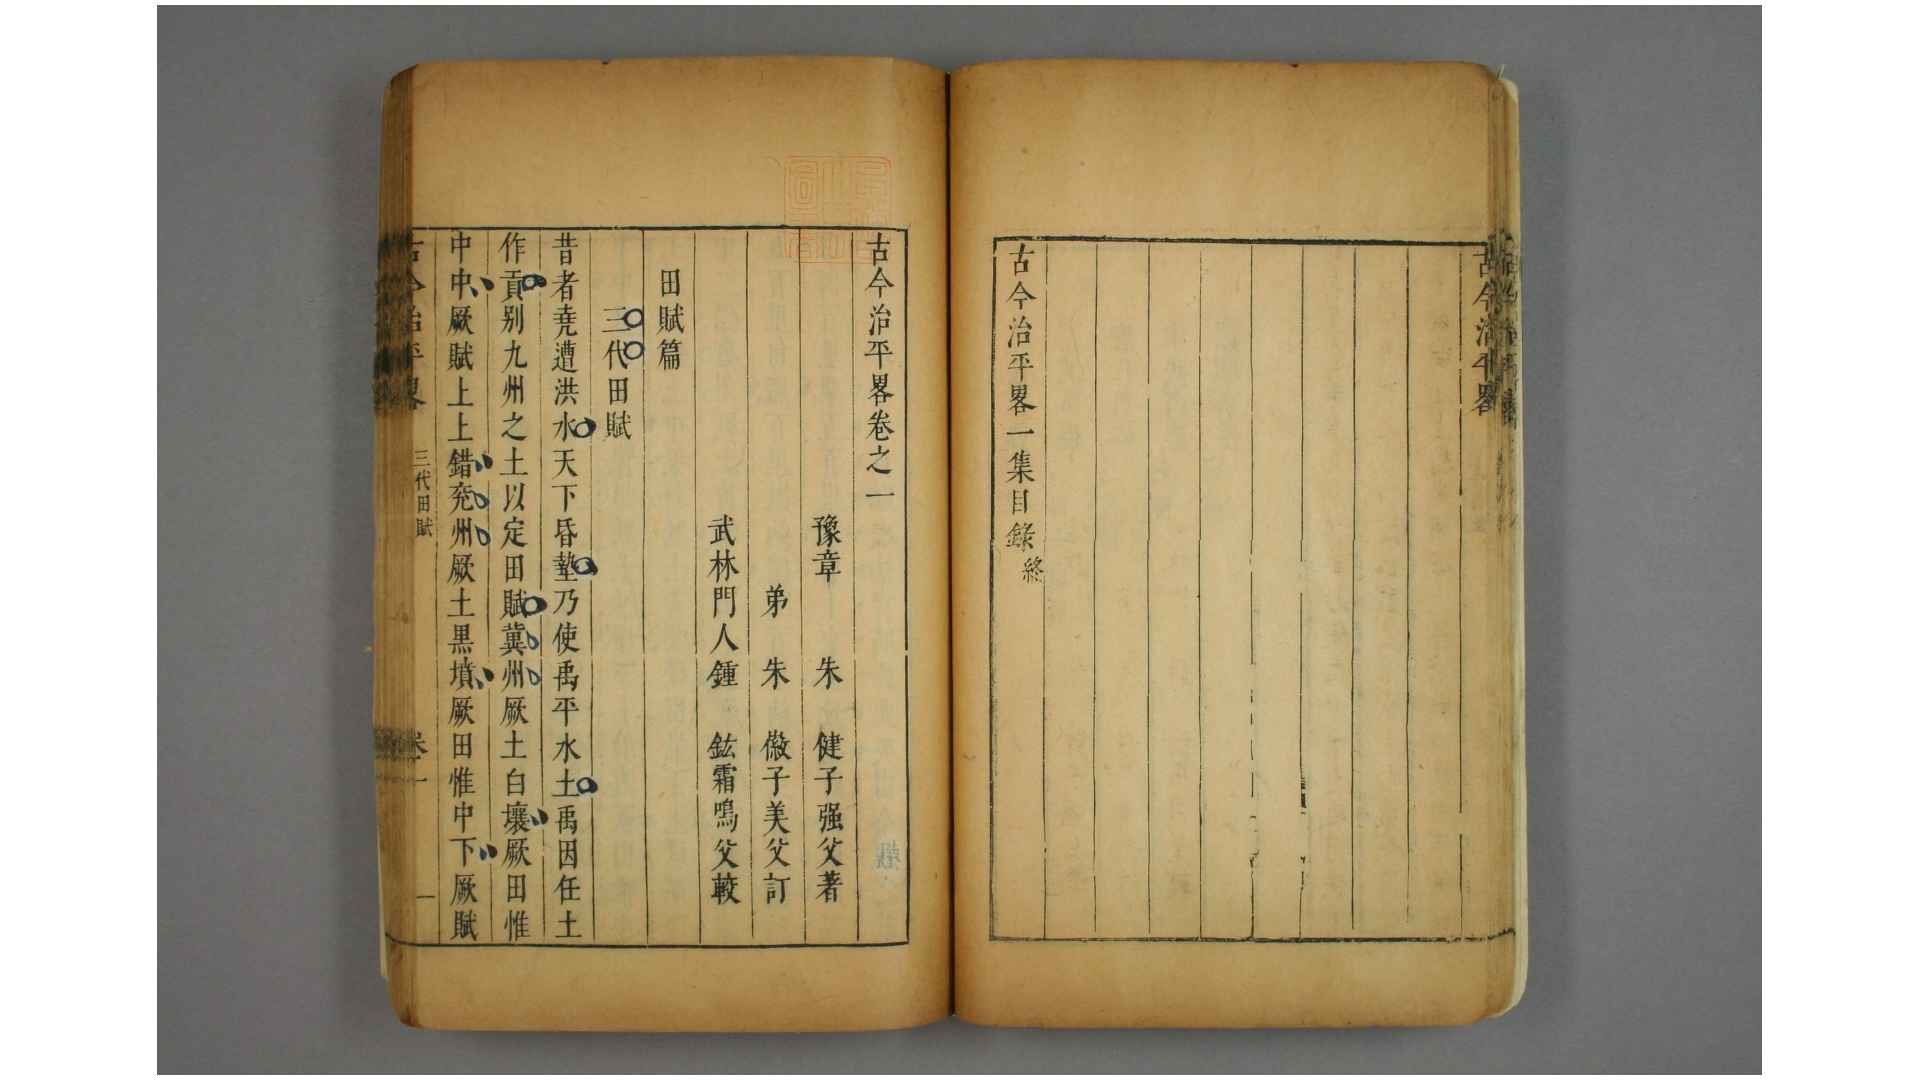 古今治平畧
古今治平畧一集目錄終
古今治平畧卷之一
豫章 朱 健子强父著
弟 朱 㣲子美父訂
武林門人鍾 鈜霜鳴父較
田賦篇
三代田賦
昔者堯遭洪水天下昏墊乃使禹平水土禹因任土
作貢別九州之土以定田賦冀州厥土白壤厥田惟
中中厥賦上上錯兖州厥土黑墳厥田惟中下厥賦
古今治平畧 三代田賦 卷一 一